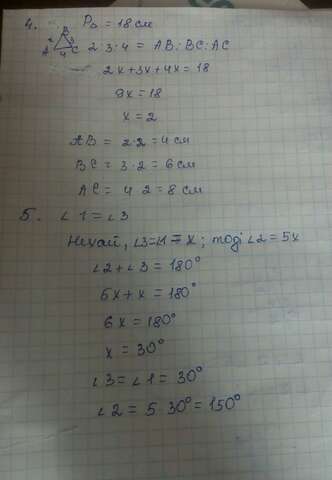 4. P△ = 18 см
B
2 3
A 4 C
2:3:4 = AB:BC:AC
2x+3x+4x=18
9x=18
x=2
AB = 2·2 = 4 см
BC = 3·2 = 6 см
AC = 4·2 = 8 см
5. ∠1=∠3
Нехай, ∠3=∠1=x; тоді ∠2=5x
∠2+∠3=180°
5x+x=180°
6x=180°
x=30°
∠3=∠1=30°
∠2=5·30°=150°